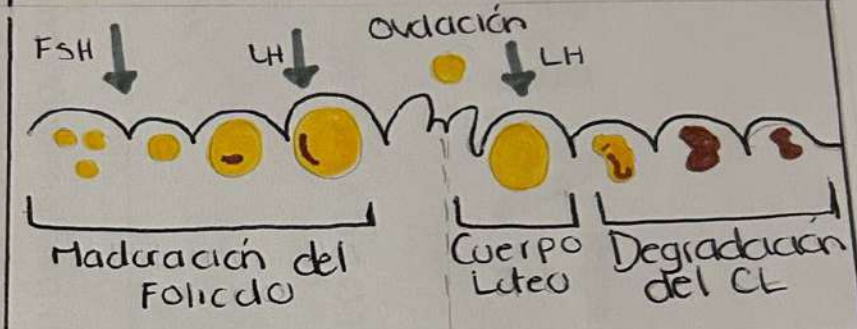 ovulación
FSH
LH
LH
Maduración del
Folículo
Cuerpo
Lúteo
Degradación
del CL